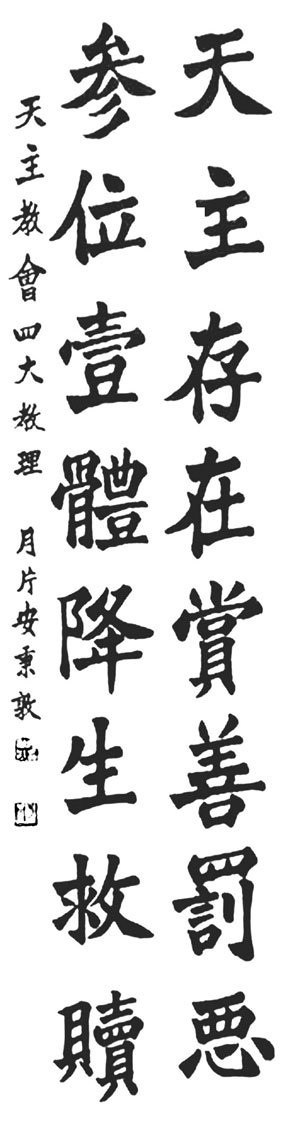 天主存在賞善罰悪
参位壹體降生救贖
天主教會四大教理 月片安秉敦